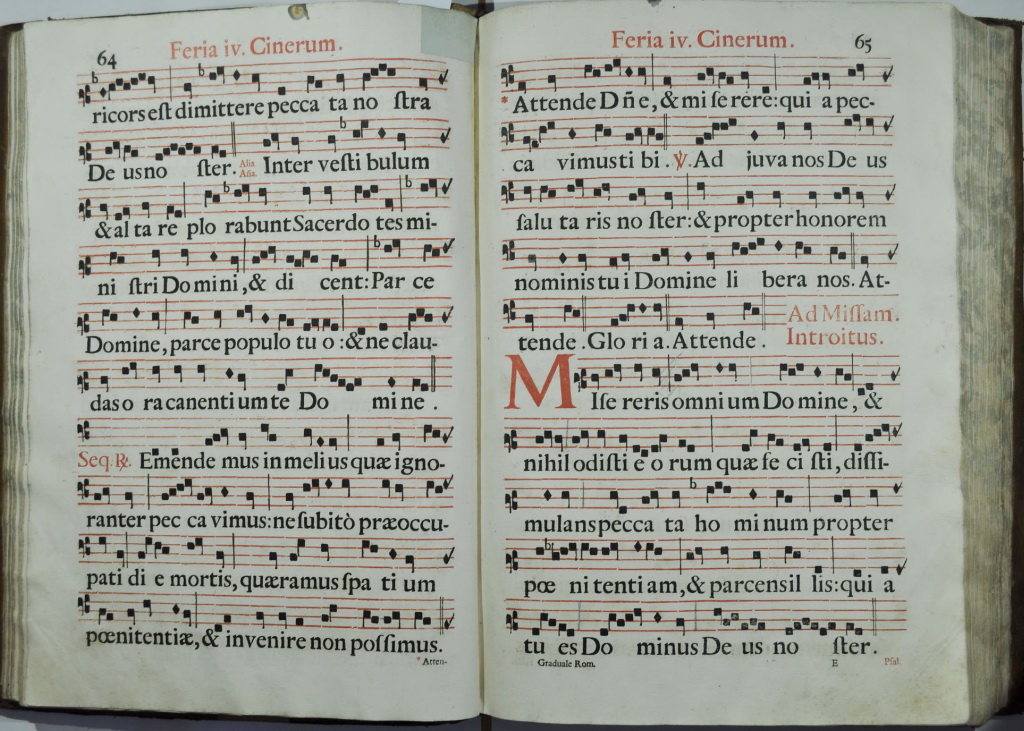 64
Feria iv. Cinerum.
ricors est dimittere pecca ta no stra
De us no ster. Alia Aña. Inter vesti bulum
& al ta re plo rabunt Sacerdo tes mi-
ni stri Domini, & di cent: Par ce
Domine, parce populo tu o: & ne clau-
das o ra canenti um te Do mi ne.
Seq. ℟. Emende mus in meli us quæ igno-
ranter pec ca vimus: ne subitò præoccu-
pati di e mortis, quæramus spa ti um
pœnitentiæ, & invenire non possimus.
* Atten-
Feria iv. Cinerum.
65
* Attende Dñe, & mi se rere: qui a pec-
ca vimus ti bi. ℣. Ad juva nos De us
salu ta ris no ster: & propter honorem
nominis tu i Domine li bera nos. At-
tende. Glo ri a. Attende.
Ad Missam.
Introitus.
MIse reris omni um Do mine, &
nihil odisti e o rum quæ fe ci sti, dissi-
mulans pecca ta ho mi num propter
pœ ni tenti am, & parcens il lis: qui a
tu es Do minus De us no ster.
Graduale Rom.
E
Psal.